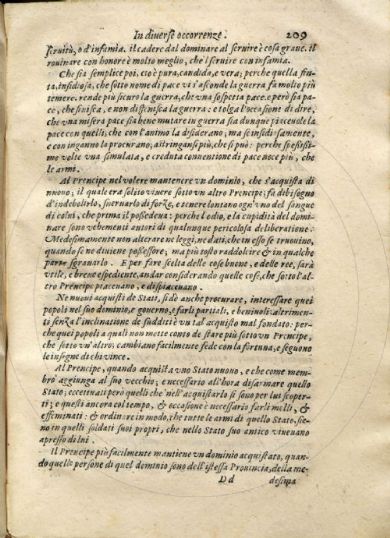 In diverse occorrenze. 209
seruitù, o d'infamia. il cadere dal dominare al seruire è cosa graue. il
rouinare con honore è molto meglio, che 'l seruire con infamia.
Che sia semplice poi, ciò è pura, candida, e vera; perche quella fin-
ta, insidiosa, che sotto nome di pace vi s'asconde la guerra fa molto più
temere. rende più sicuro la guerra, che vna sospetta pace. e però sia pa-
ce, che sia fissa, e non distenisca la guerra: e tolga l'occasione di dire,
che vna misera pace sia bene mutare in guerra sia dunque piaceuole la
pace con quelli, che con l'animo la disiderano; ma se insidiosamente,
e con inganno la procurano, astringansi più, che si può: perche spessissi-
mo volte vna simulata, e creduta conuentione di pace noce più, che
le armi.
Al Prencipe nel volere mantenere vn dominio, che s'acquista di
nuouo; il quale era solito viuere sotto vn altro Prencipe; fa di bisogno
d'indebolirlo, sneruarlo di forze, e tenere lontano ogn'vno del sangue
di colui, che prima il possedeua: perche l'odio, e la cupidità del domi-
nare sono vehementi autori di qualunque pericolosa deliberatione:
Medesimamente non alterare ne leggi, ne dati, che in esso se trouino,
quando se ne diuiene possessore, ma più tosto raddolcire & in qualche
parte sgranarlo. E per fire scelta delle cose buone, e delle ree, sarà
vtile, e bene espediente, andar considerando quelle cose, che sotto l'al-
tro Prencipe piaceuano, e dispiaceuano.
Ne nuoui acquisti de Stati, si dè anche procurare, interessare quei
popoli nel suo dominio, e gouerno, e farli partiali, e beniuoli: altrimen-
ti senza l'inclinatione de sudditi è vn tal acquisto mal fondato: per-
che quei popoli a quali non mette conto de stare più sotto vn Prencipe,
che sotto vn'altro; cambiano facilmente fede con la fortuna, e seguono
le insegne di chi vince.
Al Prencipe, quando acquista vno Stato nuouo, e che come mem-
bro aggiunga al suo vecchio; e necessario all'hora disarmare quello
Stato; eccettuati però quelli che 'nell'acquistarlo si sono per lui scoper-
ti; e questi ancora col tempo, & occasione è necessario farle molli, &
effeminati: & ordinare in modo, che tutte le armi di quello Stato, sie-
no in quelli soldati suoi propri, che nello Stato suo antico viueuano
apresso di lui.
Il Prencipe più facilmente mantiene vn dominio acquistato, quan-
do quelle persone di quel dominio sono dell'istessa Prouincia, della me-
D d desima